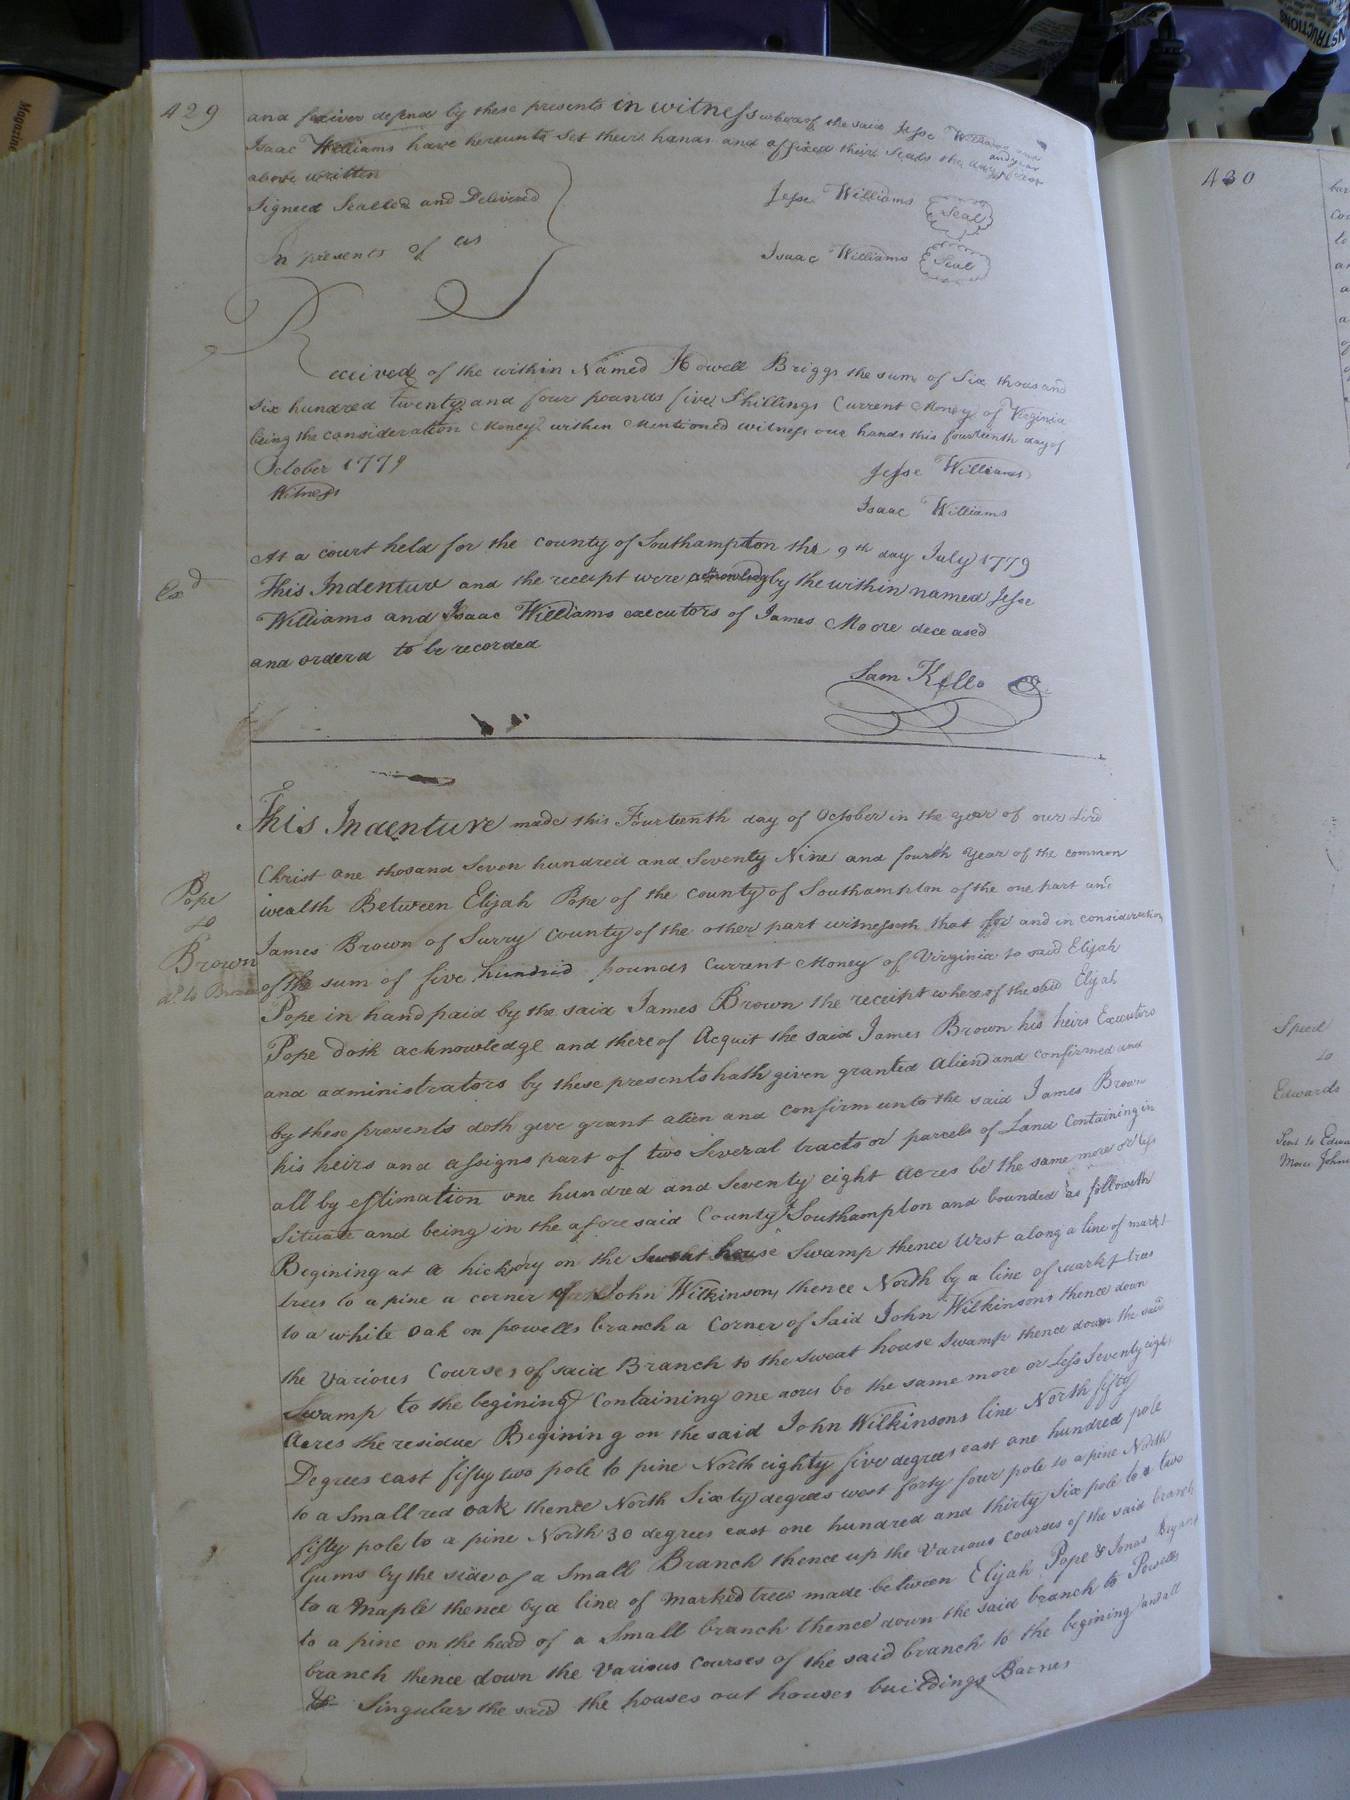 429
and forever defend by these presents in witness whereof the said Jesse Williams and
Isaac Williams have hereunto Set their hands and affixed their Seals the day and year
above written
Signed Sealled and Delivered
In presents of us
Jesse Williams Seal
Isaac Williams Seal
Received of the within Named Howell Briggs the sum of Six thousand
Six hundred twenty and four pounds five Shillings Current Money of Virginia
being the consideration Money within Mentioned witness our hands this fourteenth day of
October 1779
Witness
Jesse Williams
Isaac Williams
At a court held for the county of Southampton the 9th day July 1779
Exd
This Indenture and the receipt were acknowledg by the within named Jesse
Williams and Isaac Williams executors of James Moore deceased
and orderd to be recorded
Sam Kello
This Indenture made this Fourteenth day of October in the year of our Lord
Christ one thosand Seven hundred and Seventy Nine and fourth Year of the common
Pope
to
Brown
dd. to Brown
wealth Between Elijah Pope of the county of Southampton of the one part and
James Brown of Surry County of the other part witnesseth that for and in consideration
of the sum of five hundrid pounds Current Money of Virginia to said Elijah
Pope in hand paid by the said James Brown the receipt whereof the said Elijah
Pope doth acknowledge and thereof Acquit the said James Brown his heirs Executors
and administrators by these presents hath given granted aliend and confirmed and
by these presents doth give grant alien and confirm unto the said James Brown
his heirs and assigns part of two Several tracts or parcels of Land Containing in
all by estimation one hundred and Seventy eight Acres be the same more or less
Situate and being in the aforesaid County of Southampton and bounded as followeth
Begining at a hickory on the Sweat house Swamp thence West along a line of markt
trees to a pine a corner of John Wilkinsons thence North by a line of markt trees
to a white oak on powells branch a Corner of Said John Wilkinsons thence down
the Various Courses of said Branch to the Sweat house Swamp thence down the said
Swamp to the begining Containing one acres be the same more or Less Seventy eight
Acres the residue Begining on the said John Wilkinsons line North fifty
Degrees east fifty two pole to pine North eighty five degrees east one hundred pole
to a Small red oak thence North Sixty degrees west forty four pole to a pine North
fifty pole to a pine North 30 degrees east one hundred and thirty Six pole to a two
Gums by the side of a Small Branch thence up the Various Courses of the said branch
to a Maple thence by a line of Marked trees made between Elijah Pope & Jonas Bryant
to a pine on the head of a Small branch thence down the said branch to Powells
branch thence down the Various Courses of the said branch to the begining and all
& Singular the said the houses out houses buildings Barnes
430
Speed
to
Edwards
Sent to Edwa
Mace John
INSTRUCTIONS
Magazine